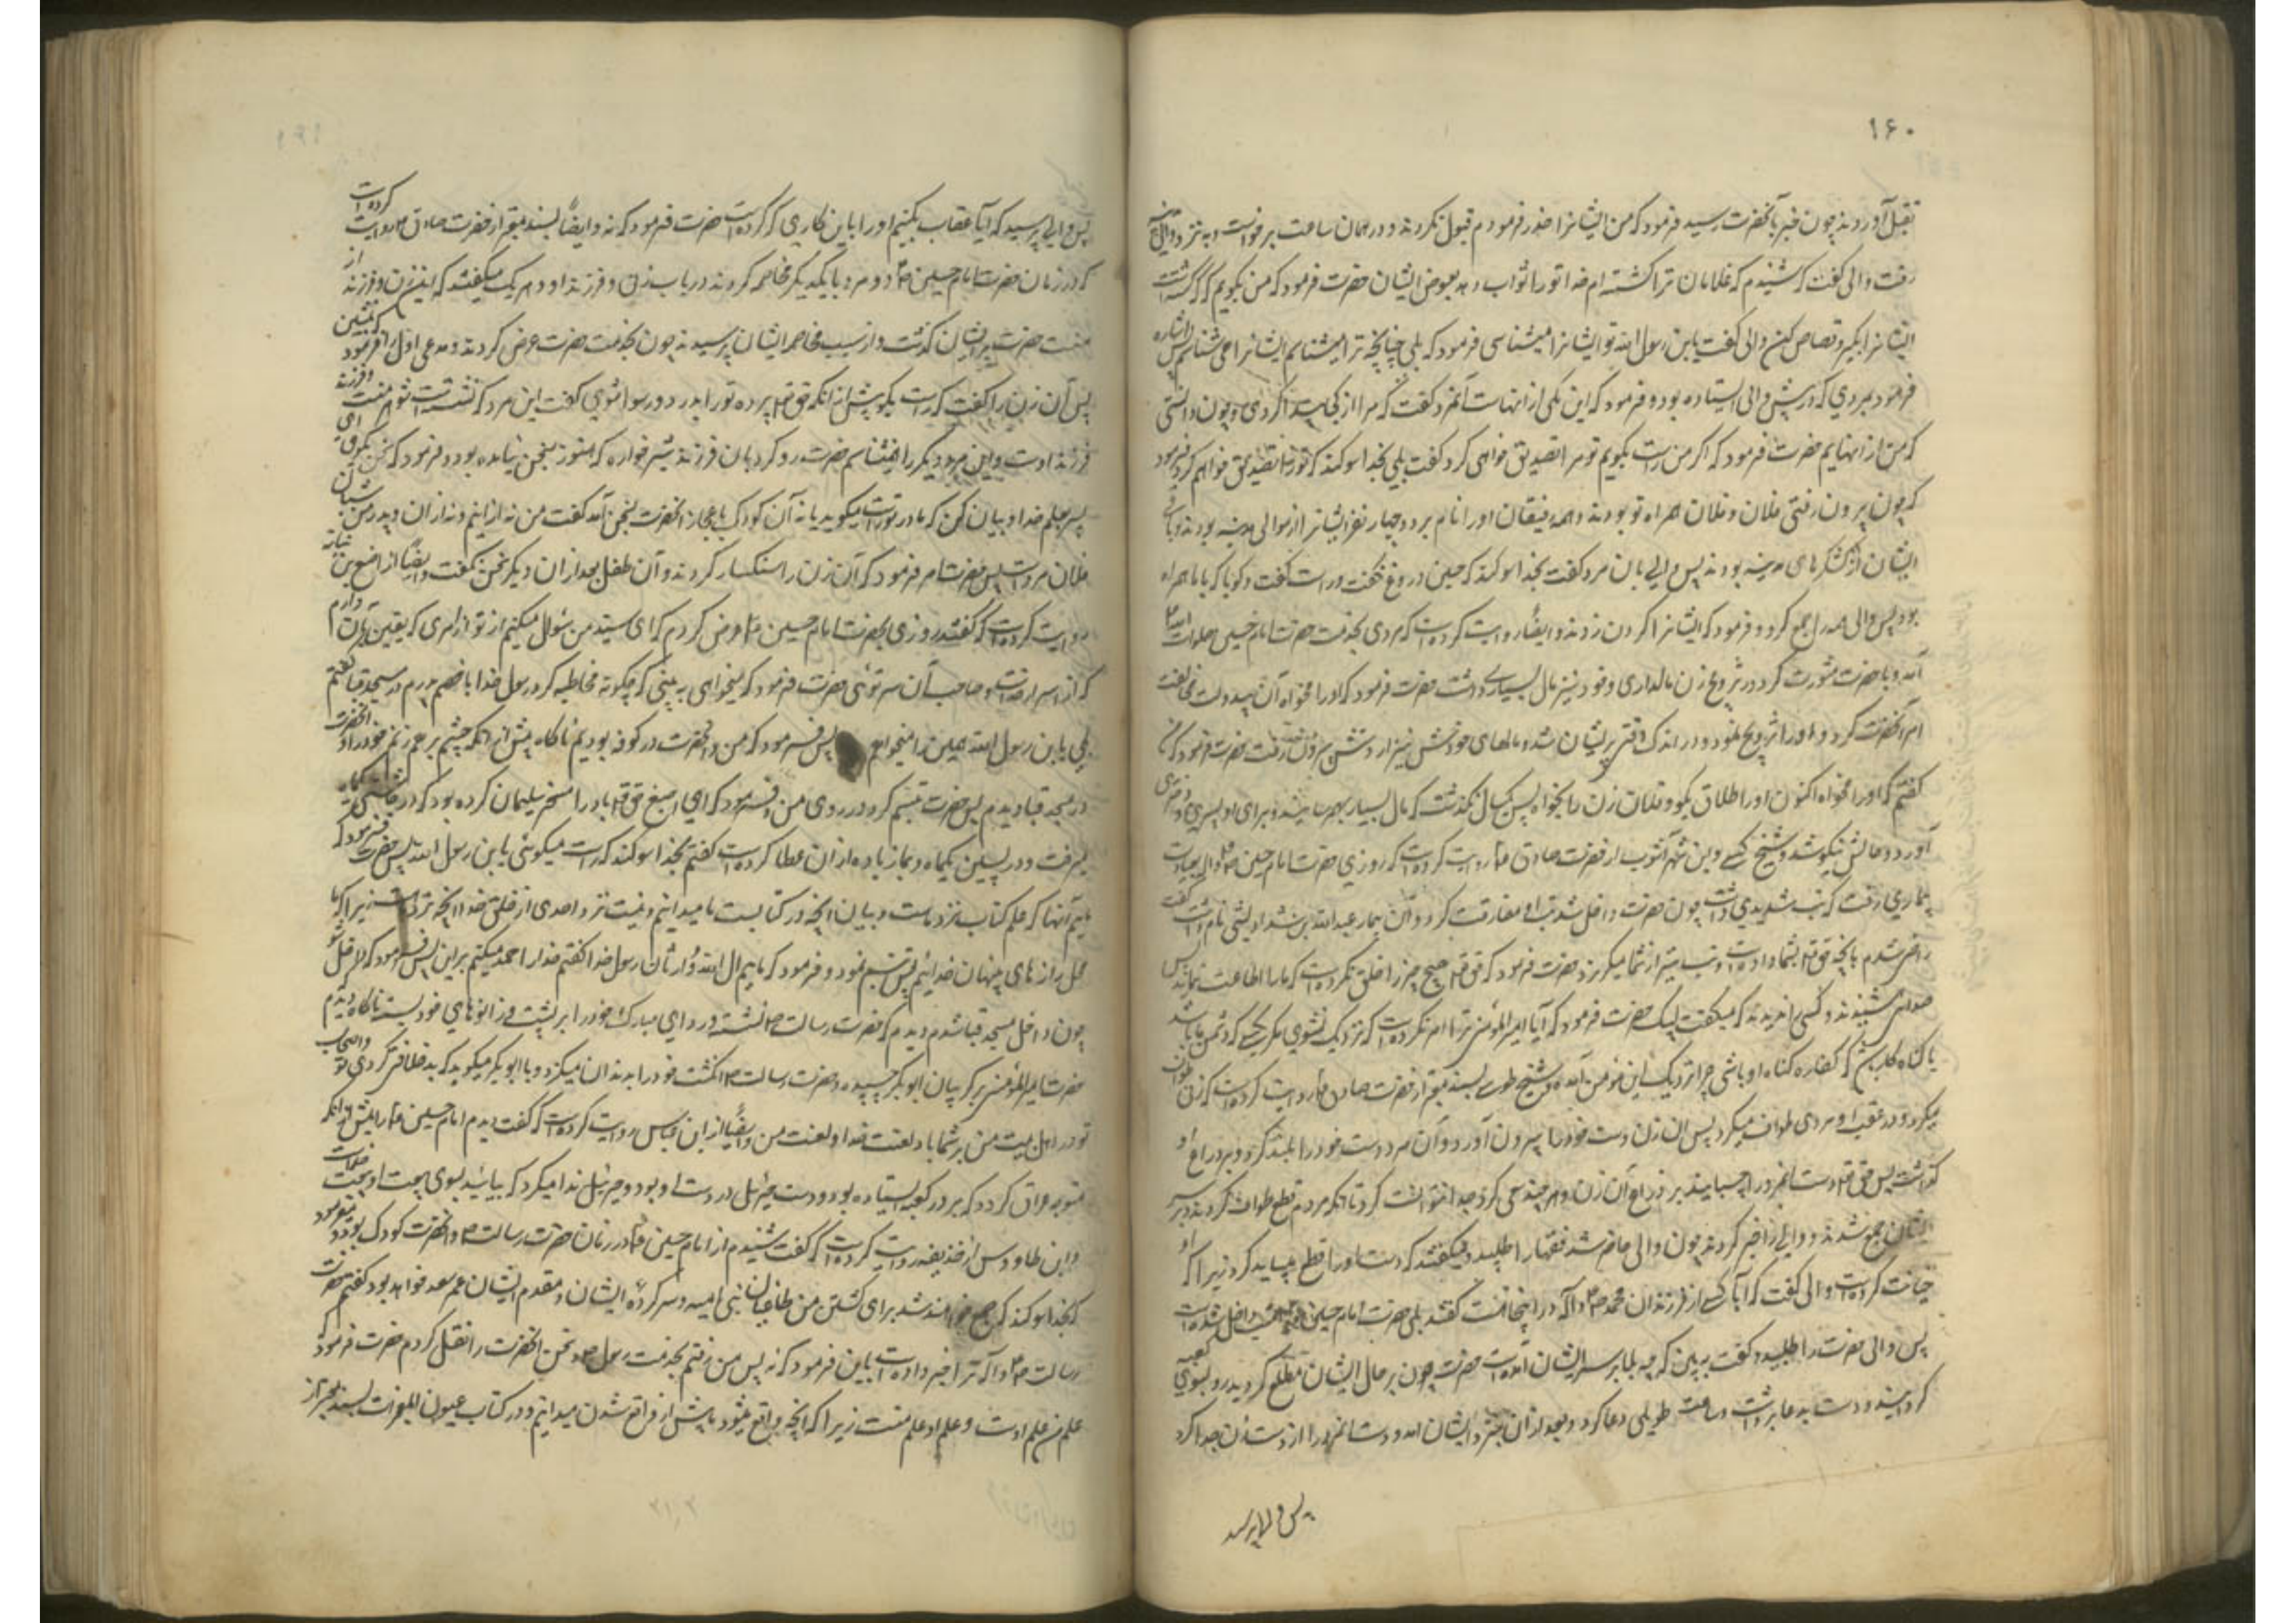 ۱۶۰
بقتل آوردند چون خبر بآنحضرت رسید فرمود که من ایشانرا حذر فرمودم قبول نکردند و در همان ساعت برخواست و بنزد والی
رفت والی گفت که شنیدم که غلامان ترا کشته‌اند خدا تو را ثواب دهد بعوض ایشان حضرت فرمود که من بگویم که که کشته است
ایشانرا بگیر و قصاص کن والی گفت یابن رسول الله تو ایشانرا میشناسی فرمود که بلی چنانچه ترا میشناسم ایشانرا می شناسم پس اشاره
فرمود بمردی که در پیش والی ایستاده بود و فرمود که این یکی از انهاست آنمرد گفت که مرا از کجا دانستی
که من از انهایم حضرت فرمود که اگر من راست بگویم تو مرا تصدیق خواهی کرد گفت بلی بخدا سوکند که تو را تصدیق خواهم کرد فرمود
که چون بیرون رفتی فلان و فلان همراه تو بودند و همه رفیقان او را نام برد و چهار نفر ایشان از موالی مدینه بودند و باقی
ایشان از لشکرهای مدینه بودند پس والی بان مرد گفت بخدا سوکند که حسین دروغ نگفت و راست گفت و گویا که با ما همراه
بود پس والی همه را جمع کرد و فرمود که ایشانرا گردن زدند و ایضا روایت کرده است که مردی بخدمت حضرت امام حسین صلوات الله
آمد و با حضرت مشورت کرد در تزویج زن مالداری و خود نیز مال بسیاری داشت حضرت فرمود که او را مخواه آن بیدولت مخالفت
امر آنحضرت کرد و او را تزویج نمود و در اندک وقتی پریشان شد و مالهای خودش نیز از دستش بیرون رفت حضرت فرمود که من
گفتم که او را مخواه اکنون او را طلاق بگو و فلان زن را بخواه پس یکسال نگذشت که مال بسیار بهم رسانید و برای او پسری و دختری
آورد و حالش نیکو شد و شیخ کشی و ابن شهر آشوب از حضرت صادق روایت کرده است که روزی حضرت امام حسین بعیادت
بیماری رفت که تب شدیدی داشت چون حضرت داخل شد تب او مفارقت کرد و آن بیمار عبدالله بن شداد لیثی نام داشت گفت
راضی شدم بانچه حق تعالی بشما داده است و تب نیز از شما میگریزد حضرت فرمود که حق تعالی هیچ چیز را خلق نکرده است که ما را اطاعت ننماید پس
صدائی شنیدند و کسی را ندیدند که میگفت لبیک حضرت فرمود که آیا امیر المؤمنین ترا امر نکرده است که نزدیک نشوی مگر بکسی که دشمن ما باشد
یا گناه کاری که کفاره گناه او باشی چرا نزدیک این مؤمن آمده و شیخ طوسی بسند معتبر از حضرت صادق روایت کرده است که زنی طواف
میکرد و در عقب او مردی طواف میکرد پس آن زن دست خود را بیرون آورد و آن مرد دست خود را بلند کرد و بر ذراع او
گذاشت پس حق تعالی دست آنمرد را چسبانید بر ذراع آن زن و هر چند سعی کرد جدا نتوانست کرد تا آنکه مردم قطع طواف کردند و بر سر
ایشان جمع شدند و والی را خبر کردند چون والی حاضر شد فقها را طلبید میگفتند که دست او را قطع میباید کرد زیرا که او
خیانت کرده است والی گفت که آیا کسی از فرزندان محمد در اینجا هست گفتند بلی حضرت امام حسین داخل شده است
پس والی حضرت را طلبید و گفت ببین که چه بلا بر سر ایشان آمده است حضرت چون بر حال ایشان مطلع گردید رو بسوی کعبه
گردانید و دست بدعا برداشت و ساعت طویلی دعا کرد و بعد از آن بنزد ایشان آمد و دست آنمرد را از دست زن جدا کرد
پس والی پرسید
پس والی پرسید که آیا عقاب بکنیم او را باین کاری که کرده است حضرت فرمود که نه و ایضا بسند معتبر از حضرت صادق روایت کرده است
که در زمان حضرت امام حسین دو مرد با یکدیگر مخاصمه کردند در باب زنی و فرزند او و هر یک میگفتند که این زن و فرزند از
منست حضرت بر ایشان گذشت و از سبب مخاصمه ایشان پرسید چون بخدمت حضرت عرض کردند مدعی اول را فرمود که بنشین
پس آن زن را گفت که راست بگو پیش از آنکه حق تعالی پرده تو را بدرد و رسوا شوی گفت این مرد که نشسته است شوهر منست و فرزند
فرزند اوست و این مرد دیگر را نمیشناسم حضرت رو کرد بان فرزند شیر خواره که هنوز بسخن نیامده بود و فرمود که سخن بگو ای
پسر بحکم خدا و بیان کن که مادر تو راست میگوید یا نه آن کودک باعجاز انحضرت بسخن آمد گفت من نه از اینم و نه از ان و پدر من شبان
فلان مرد است پس حضرت امر فرمود که آن زن را سنگسار کردند و آن طفل بعد از ان دیگر سخن نگفت و ایضا از اصبغ بن نباته
روایت کرده است که گفت روزی بحضرت امام حسین عرض کردم که ای سید من سؤال میکنم از تو از امری که یقین بآن دارم
که از اسرار خداست و صاحب آن سر توئی حضرت فرمود که میخواهی به بینی که چگونه مخاطبه کرد رسول خدا با خصم پدرم در مسجد قبا گفتم
بلی یابن رسول الله همین را میخواهم پس فرمود که من و انحضرت در کوفه بودیم ناگاه پیش از آنکه چشم بر هم زنم خود را و انحضرت
در مسجد قبا دیدم پس حضرت تبسم کرد در روی من و فرمود که ای اصبغ حق تعالی باد را مسخر سلیمان کرده بود که در چاشتی یکماه
میرفت و در پسین یکماه و بما زیاده از ان عطا کرده است گفتم بخدا سوکند که راست میگوئی یابن رسول الله پس حضرت فرمود که
مائیم آنها که علم کتاب نزد ماست و بیان آنچه در کتابست ما میدانیم و نیست نزد احدی از خلق خدا آنچه نزد ماست زیرا که ما
محل رازهای پنهان خدائیم پس تبسم نمود و فرمود که مائیم آل الله و وارثان رسول خدا گفتم خدا را حمد میکنم بر این پس فرمود که داخل شو
چون داخل مسجد قبا شدم دیدم که حضرت رسالت نشسته و ردای مبارک خود را بر پشت و زانوهای خود بسته ناگاه دیدم
حضرت امیر المؤمنین بر گریبان ابوبکر چسپیده و حضرت رسالت انگشت خود را بدندان میگزد و با ابوبکر میگوید که بد خلافتی کردی تو و اصحاب
تو در اهل بیت من بر شما باد لعنت خدا و لعنت من و ایضا از ابن عباس روایت کرده است که گفت دیدم امام حسین را پیش از آنکه
متوجه عراق گردد که بر در کعبه ایستاده بود و دست جبرئیل در دست او بود و جبرئیل ندا میکرد که بیائید بسوی بیعت او که بیعت خداست
و ابن طاووس از حذیفه روایت کرده است که گفت شنیدم از امام حسین در زمان حضرت رسالت و انحضرت کودک بود میفرمود
که بخدا سوکند که جمع خواهند شد برای کشتن من طاغیان بنی امیه و سرکرده ایشان و مقدم ایشان عمر سعد خواهد بود گفتم حضرت
رسالت ترا خبر داده است باین فرمود که نه پس من رفتم بخدمت رسول و سخن انحضرت را نقل کردم حضرت فرمود که
علم من علم اوست و علم او علم منست زیرا که آنچه واقع میشود ما پیش از واقع شدن میدانیم و در کتاب عیون المعجزات بسند معتبر از